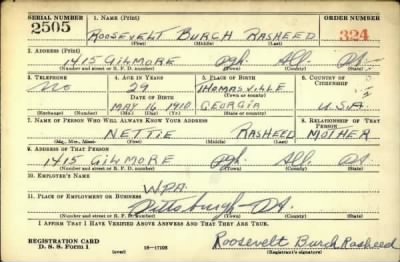 SERIAL NUMBER 1. NAME (Print) ORDER NUMBER
2505 ROOSEVELT BURCH RASHEED 324
(First) (Middle) (Last)
2. ADDRESS (Print)
1415 GILMORE Pgh. All. Pa.
(Number and street or R. F. D. number) (Town) (County) (State)
3. TELEPHONE 4. AGE IN YEARS 5. PLACE OF BIRTH 6. COUNTRY OF CITIZENSHIP
No 29 THOMASVILLE
DATE OF BIRTH (Town or county)
MAY 16, 1910 GEORGIA U.S.A.
(Exchange) (Number) (Mo.) (Day) (Yr.) (State or country)
7. NAME OF PERSON WHO WILL ALWAYS KNOW YOUR ADDRESS 8. RELATIONSHIP OF THAT PERSON
NETTIE RASHEED MOTHER
(Mr., Mrs., Miss) (First) (Middle) (Last)
9. ADDRESS OF THAT PERSON
1415 GILMORE Pgh. All. Pa.
(Number and street or R. F. D. number) (Town) (County) (State)
10. EMPLOYER'S NAME
W.P.A.
11. PLACE OF EMPLOYMENT OR BUSINESS
Pittsburgh - Pa.
(Number and street or R. F. D. number) (Town) (County) (State)
I AFFIRM THAT I HAVE VERIFIED ABOVE ANSWERS AND THAT THEY ARE TRUE.
REGISTRATION CARD Roosevelt Burch Rasheed
D. S. S. Form 1 (over) 16-17105 (Registrant's signature)